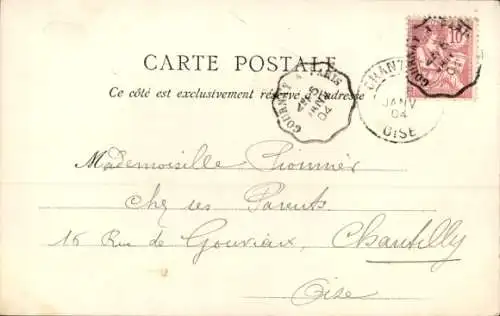 CARTE POSTALE
Ce côté est exclusivement réservé à l'adresse
GOURNAY A PARIS
JANV
04
GOURNAY A PARIS
04
CHANT
JANV
04
OISE
10
Mademoiselle Pionnier
Chez ses Parents
16 Rue de Gouvieux, Chantilly
Oise